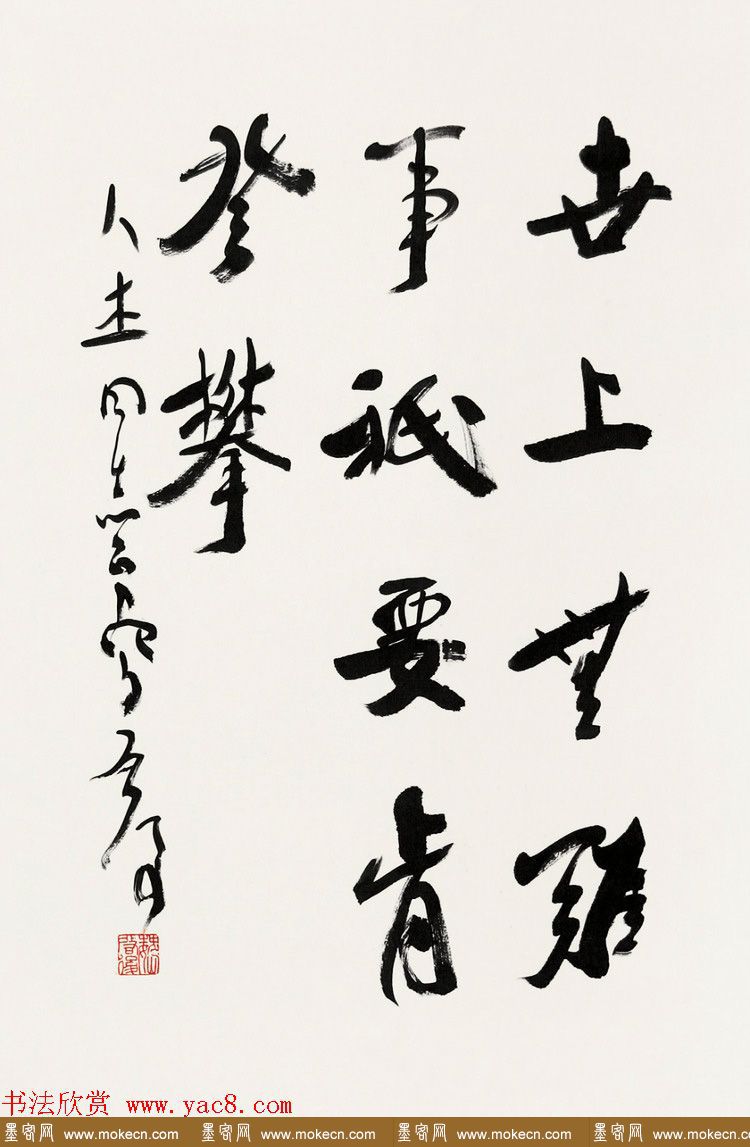 世上無難
事祇要肯
登攀
人杰同志
书法欣赏 www.yac8.com
墨客网 www.mokecn.com 墨客网 www.mokecn.com 墨客网 www.mokecn.com 墨客网 www.mokecn.com